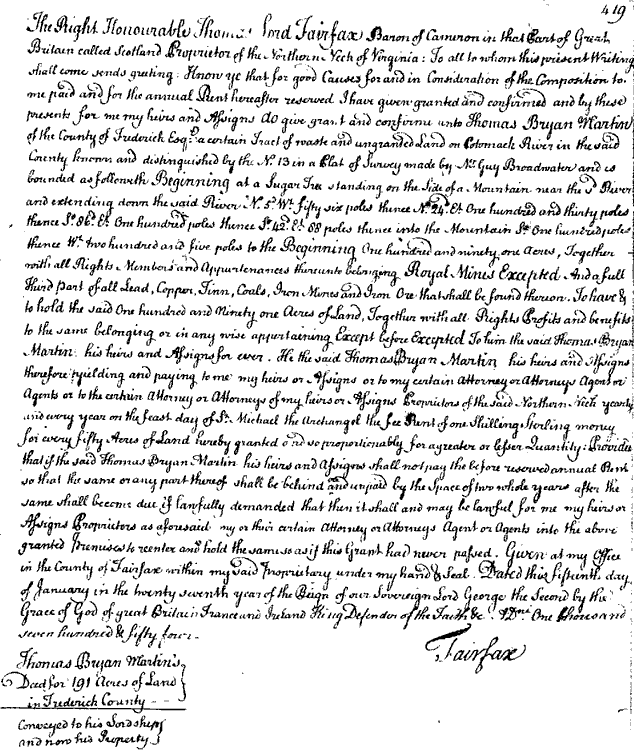 419
The Right Honourable Thomas Lord Fairfax Baron of Cameron in that Part of Great
Britain called Scotland Proprietor of the Northern Neck of Virginia: To all to whom this present Writing
shall come sends greting: Know ye that for good Causes for and in Consideration of the Composition to
me paid and for the annual Rent hereafter reserved I have given granted and confirmed and by these
presents for me my heirs and Assigns do give grant and confirm unto Thomas Bryan Martin
of the County of Frederick Esqr. a certain Tract of waste and ungranted Land on Potomack River in the said
County known and distinguished by the No. 13 in a Plat of Survey made by Mr. Guy Broadwater and is
bounded as followeth Beginning at a Sugar Tree standing on the Side of a Mountain near the sd. River
and extending down the said River No. 5d. Wt. fifty six poles thence No. 24d. Et. One hundred and thirty poles
thence So. 86d. Et. One hundred poles thence So. 42d. Et. 88 poles thence into the Mountain So. One hundred poles
thence Wt. two hundred and five poles to the Beginning One hundred and ninety one Acres, Together
with all Rights Members and Appurtenances thereunto belonging Royal Mines Excepted And a full
Third part of all Lead, Copper, Tinn, Coals, Iron Mines and Iron Ore that shall be found thereon. To have &
to hold the said One hundred and Ninety one Acres of Land, Together with all Rights Profits and benefits
to the same belonging or in any wise appertaining Except before Excepted To him the said Thomas Bryan
Martin his heirs and Assigns for ever. He the said Thomas Bryan Martin his heirs and Assigns
therefore yeilding and paying to me my heirs or Assigns or to my certain Attorney or Attorneys Agent or
Agents or to the certain Attorney or Attorneys of my heirs or Assigns Proprietors of the said Northern Neck yearly
and every year on the feast day of St. Michael the Archangel the fee Rent of one Shilling Sterling money
for every fifty Acres of Land hereby granted and so proportionably for a greater or lesser Quantity: Provided
that if the said Thomas Bryan Martin his heirs and Assigns shall not pay the before reserved annual Rent
so that the same or any part thereof shall be behind and unpaid by the Space of two whole years after the
same shall become due if lawfully demanded that then it shall and may be lawful for me my heirs or
Assigns Proprietors as aforesaid my or their certain Attorney or Attorneys Agent or Agents into the above
granted Premises to reenter and hold the same so as if this Grant had never passed. Given at my Office
in the County of Fairfax within my said Proprietary under my hand & Seal. Dated this fifteenth day
of January in the twenty seventh year of the Reign of our Sovereign Lord George the Second by the
Grace of God of great Britain France and Ireland King Defender of the Faith &c. ADmi. One thousand
seven hundred & fifty four.
Fairfax
Thomas Bryan Martin's
Deed for 191 Acres of Land
in Frederick County
Conveyed to his Lordship
and now his Property